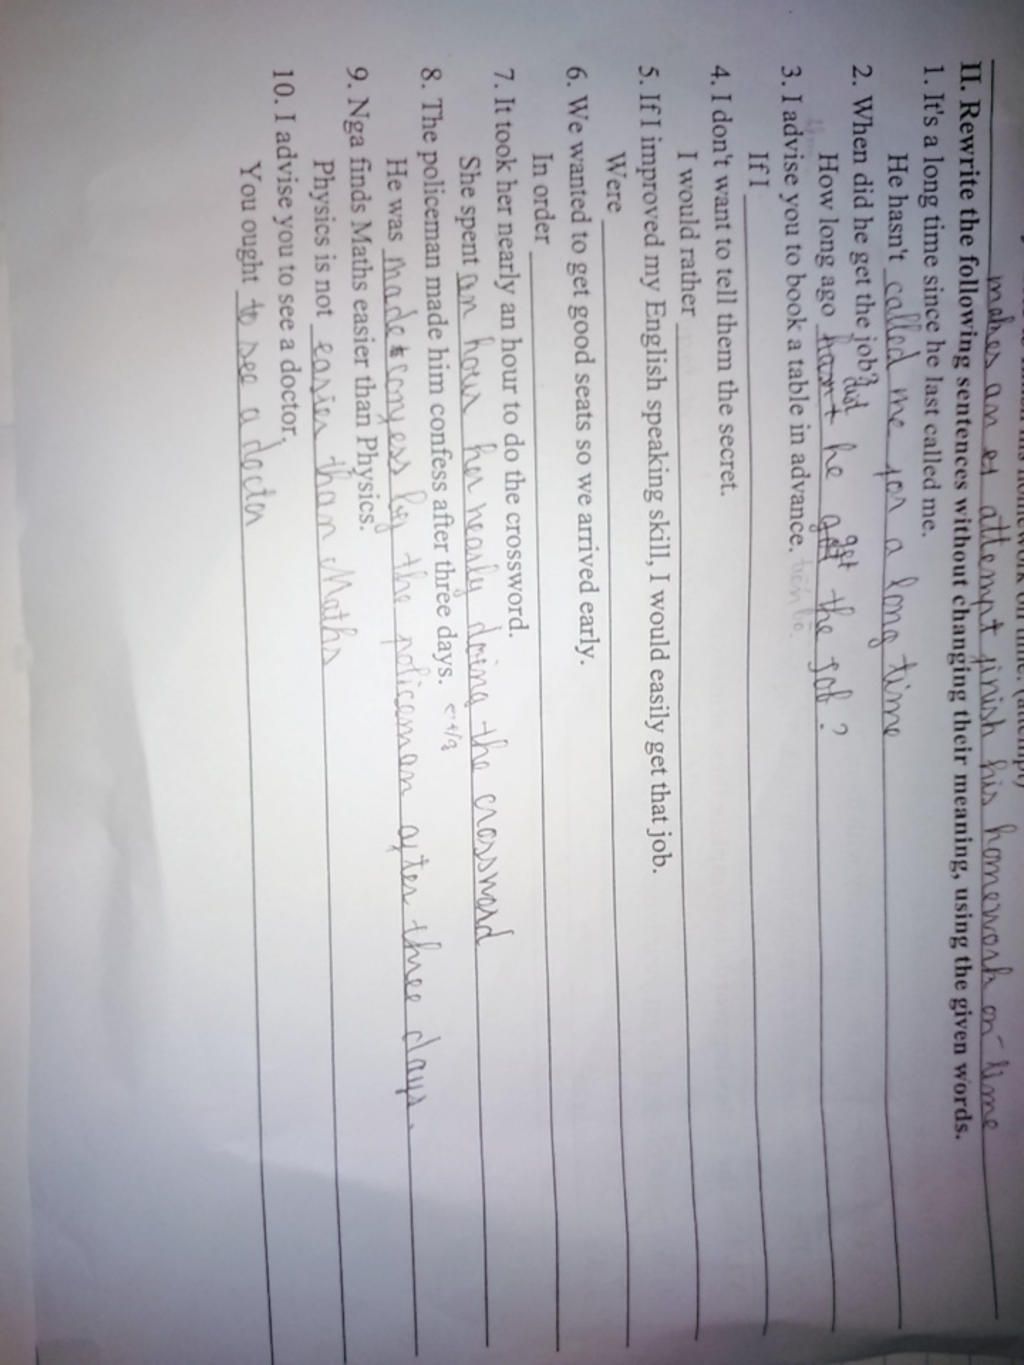 makes an attempt finish his homework on time
II. Rewrite the following sentences without changing their meaning, using the given words.
1. It's a long time since he last called me.
He hasn't called me for a long time
2. When did he get the job?
How long ago did he get the job?
3. I advise you to book a table in advance.
If I
4. I don't want to tell them the secret.
I would rather
5. If I improved my English speaking skill, I would easily get that job.
Were
6. We wanted to get good seats so we arrived early.
In order
7. It took her nearly an hour to do the crossword.
She spent an hour her nearly doing the crossword
8. The policeman made him confess after three days.
He was made confess by the policeman after three days.
9. Nga finds Maths easier than Physics.
Physics is not easier than Maths
10. I advise you to see a doctor.
You ought to see a doctor